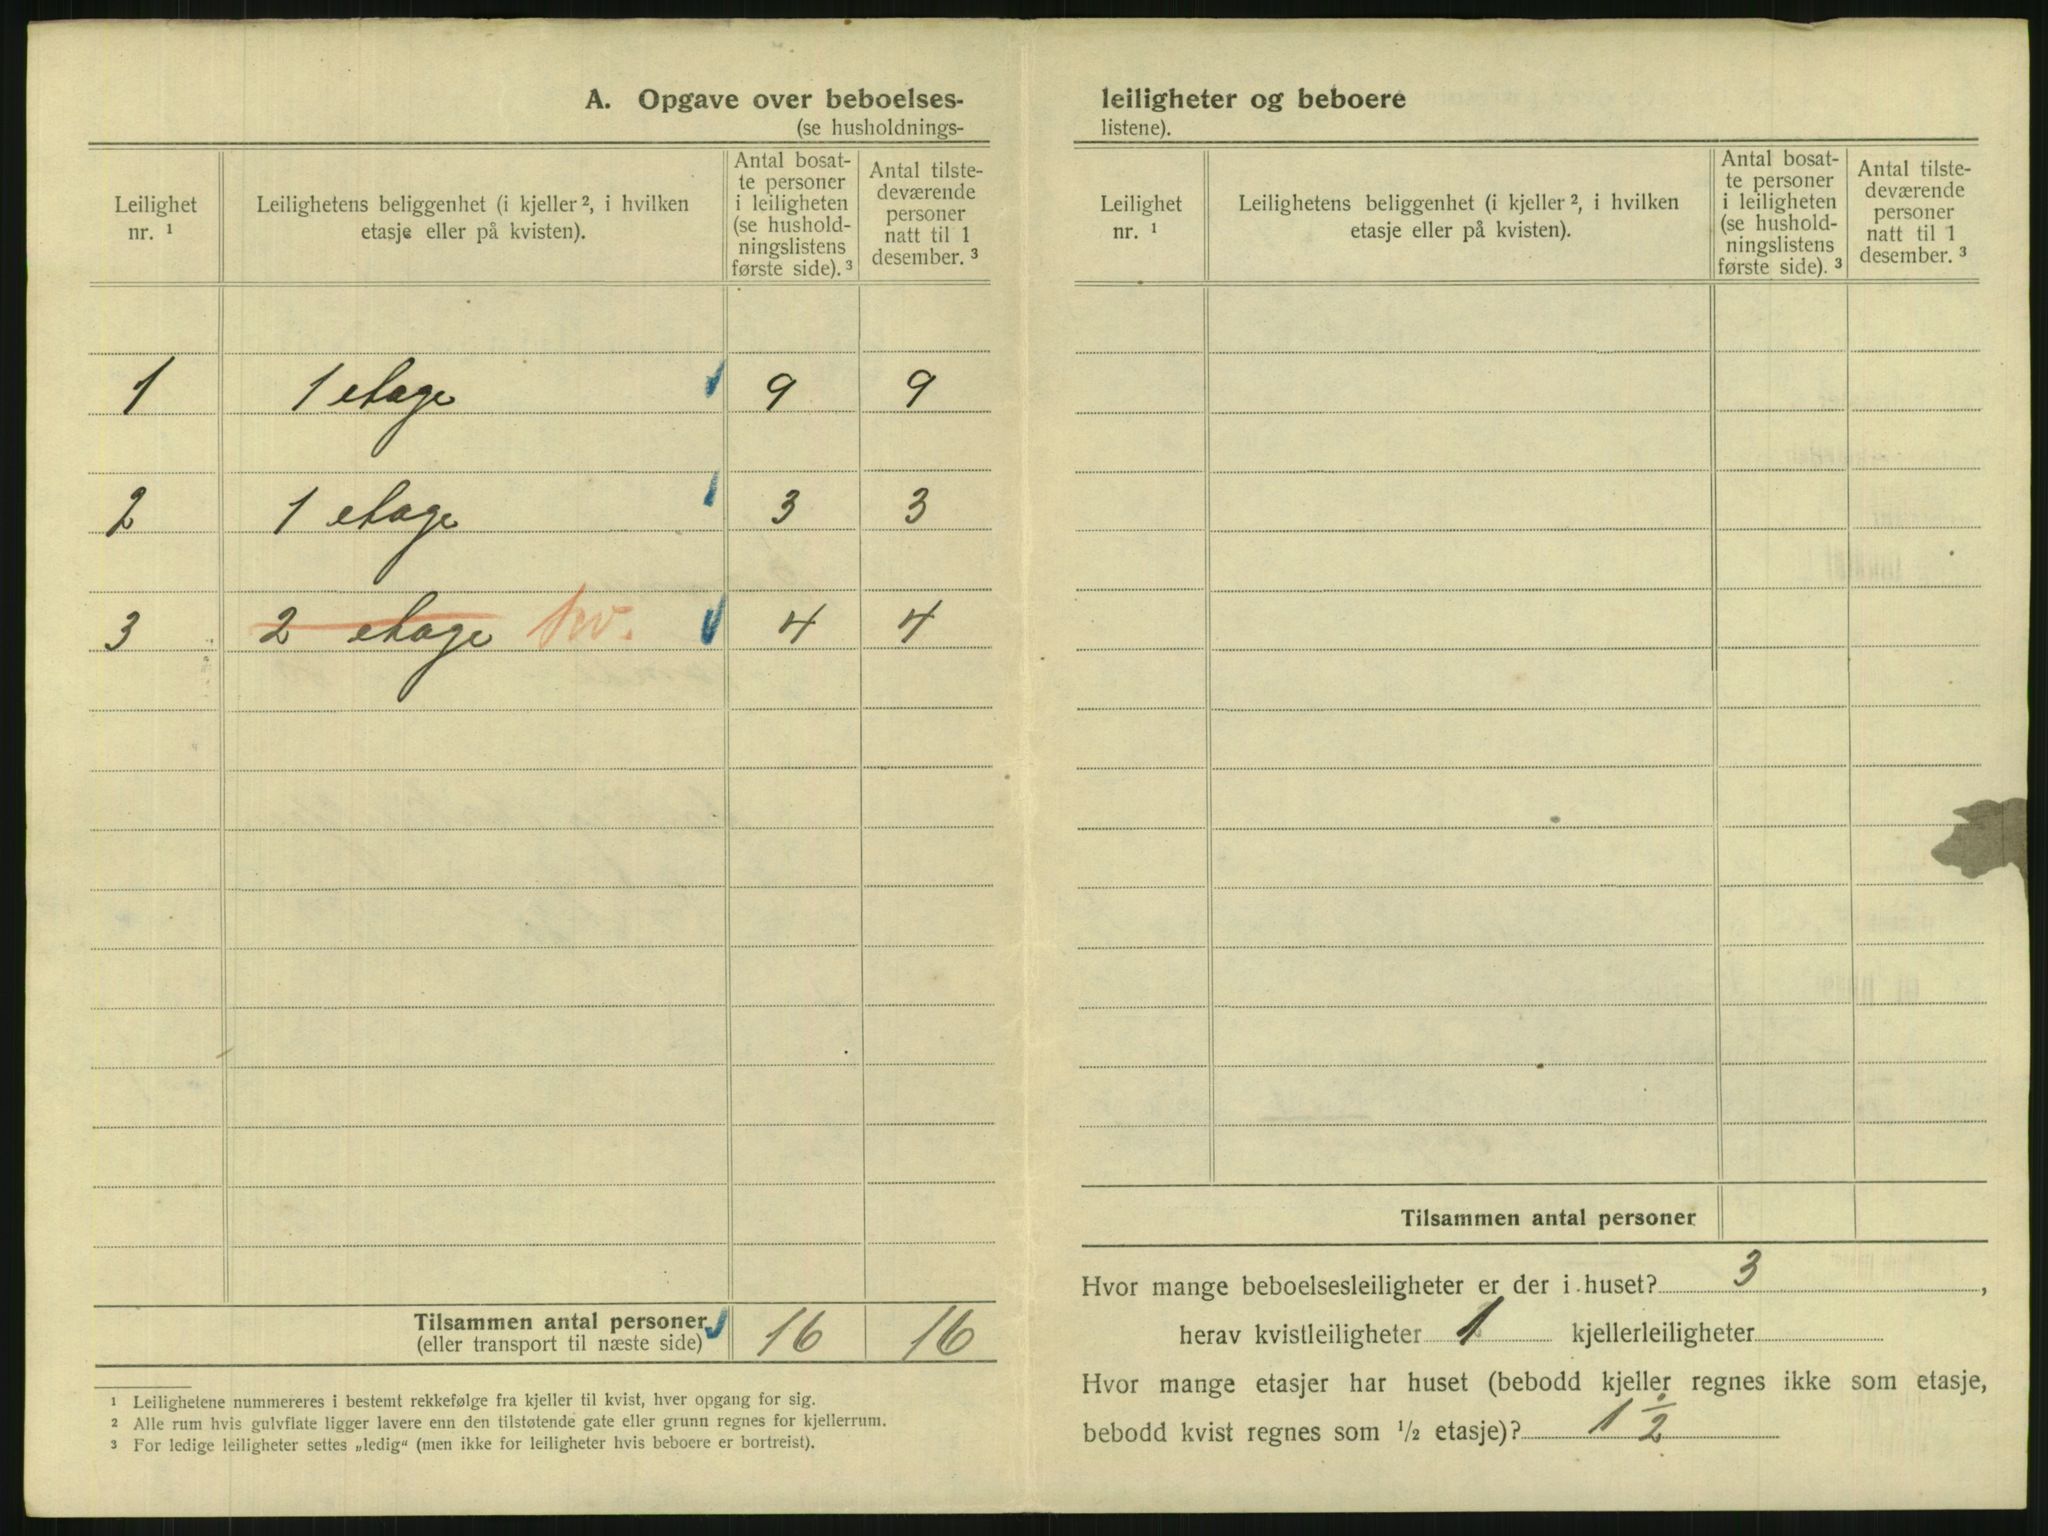 A. Opgave over beboelses-
(se husholdnings-
Leilighet nr. ¹
Leilighetens beliggenhet (i kjeller ², i hvilken
etasje eller på kvisten).
Antal bosat-
te personer
i leiligheten
(se hushold-
ningslistens
første side). ³
Antal tilste-
deværende
personer
natt til 1
desember. ³
1 1 etage 9 9
2 1 etage 3 3
3 2 etage kv. 4 4
Tilsammen antal personer 16 16
(eller transport til næste side)
¹ Leilighetene nummereres i bestemt rekkefølge fra kjeller til kvist, hver opgang for sig.
² Alle rum hvis gulvflate ligger lavere enn den tilstøtende gate eller grunn regnes for kjellerrum.
³ For ledige leiligheter settes „ledig“ (men ikke for leiligheter hvis beboere er bortreist).
leiligheter og beboere
listene).
Leilighet nr. ¹
Leilighetens beliggenhet (i kjeller ², i hvilken
etasje eller på kvisten).
Antal bosat-
te personer
i leiligheten
(se hushold-
ningslistens
første side). ³
Antal tilste-
deværende
personer
natt til 1
desember. ³
Tilsammen antal personer
Hvor mange beboelsesleiligheter er der i huset? 3 ,
herav kvistleiligheter 1 kjellerleiligheter
Hvor mange etasjer har huset (bebodd kjeller regnes ikke som etasje,
bebodd kvist regnes som ½ etasje)? 1 ½